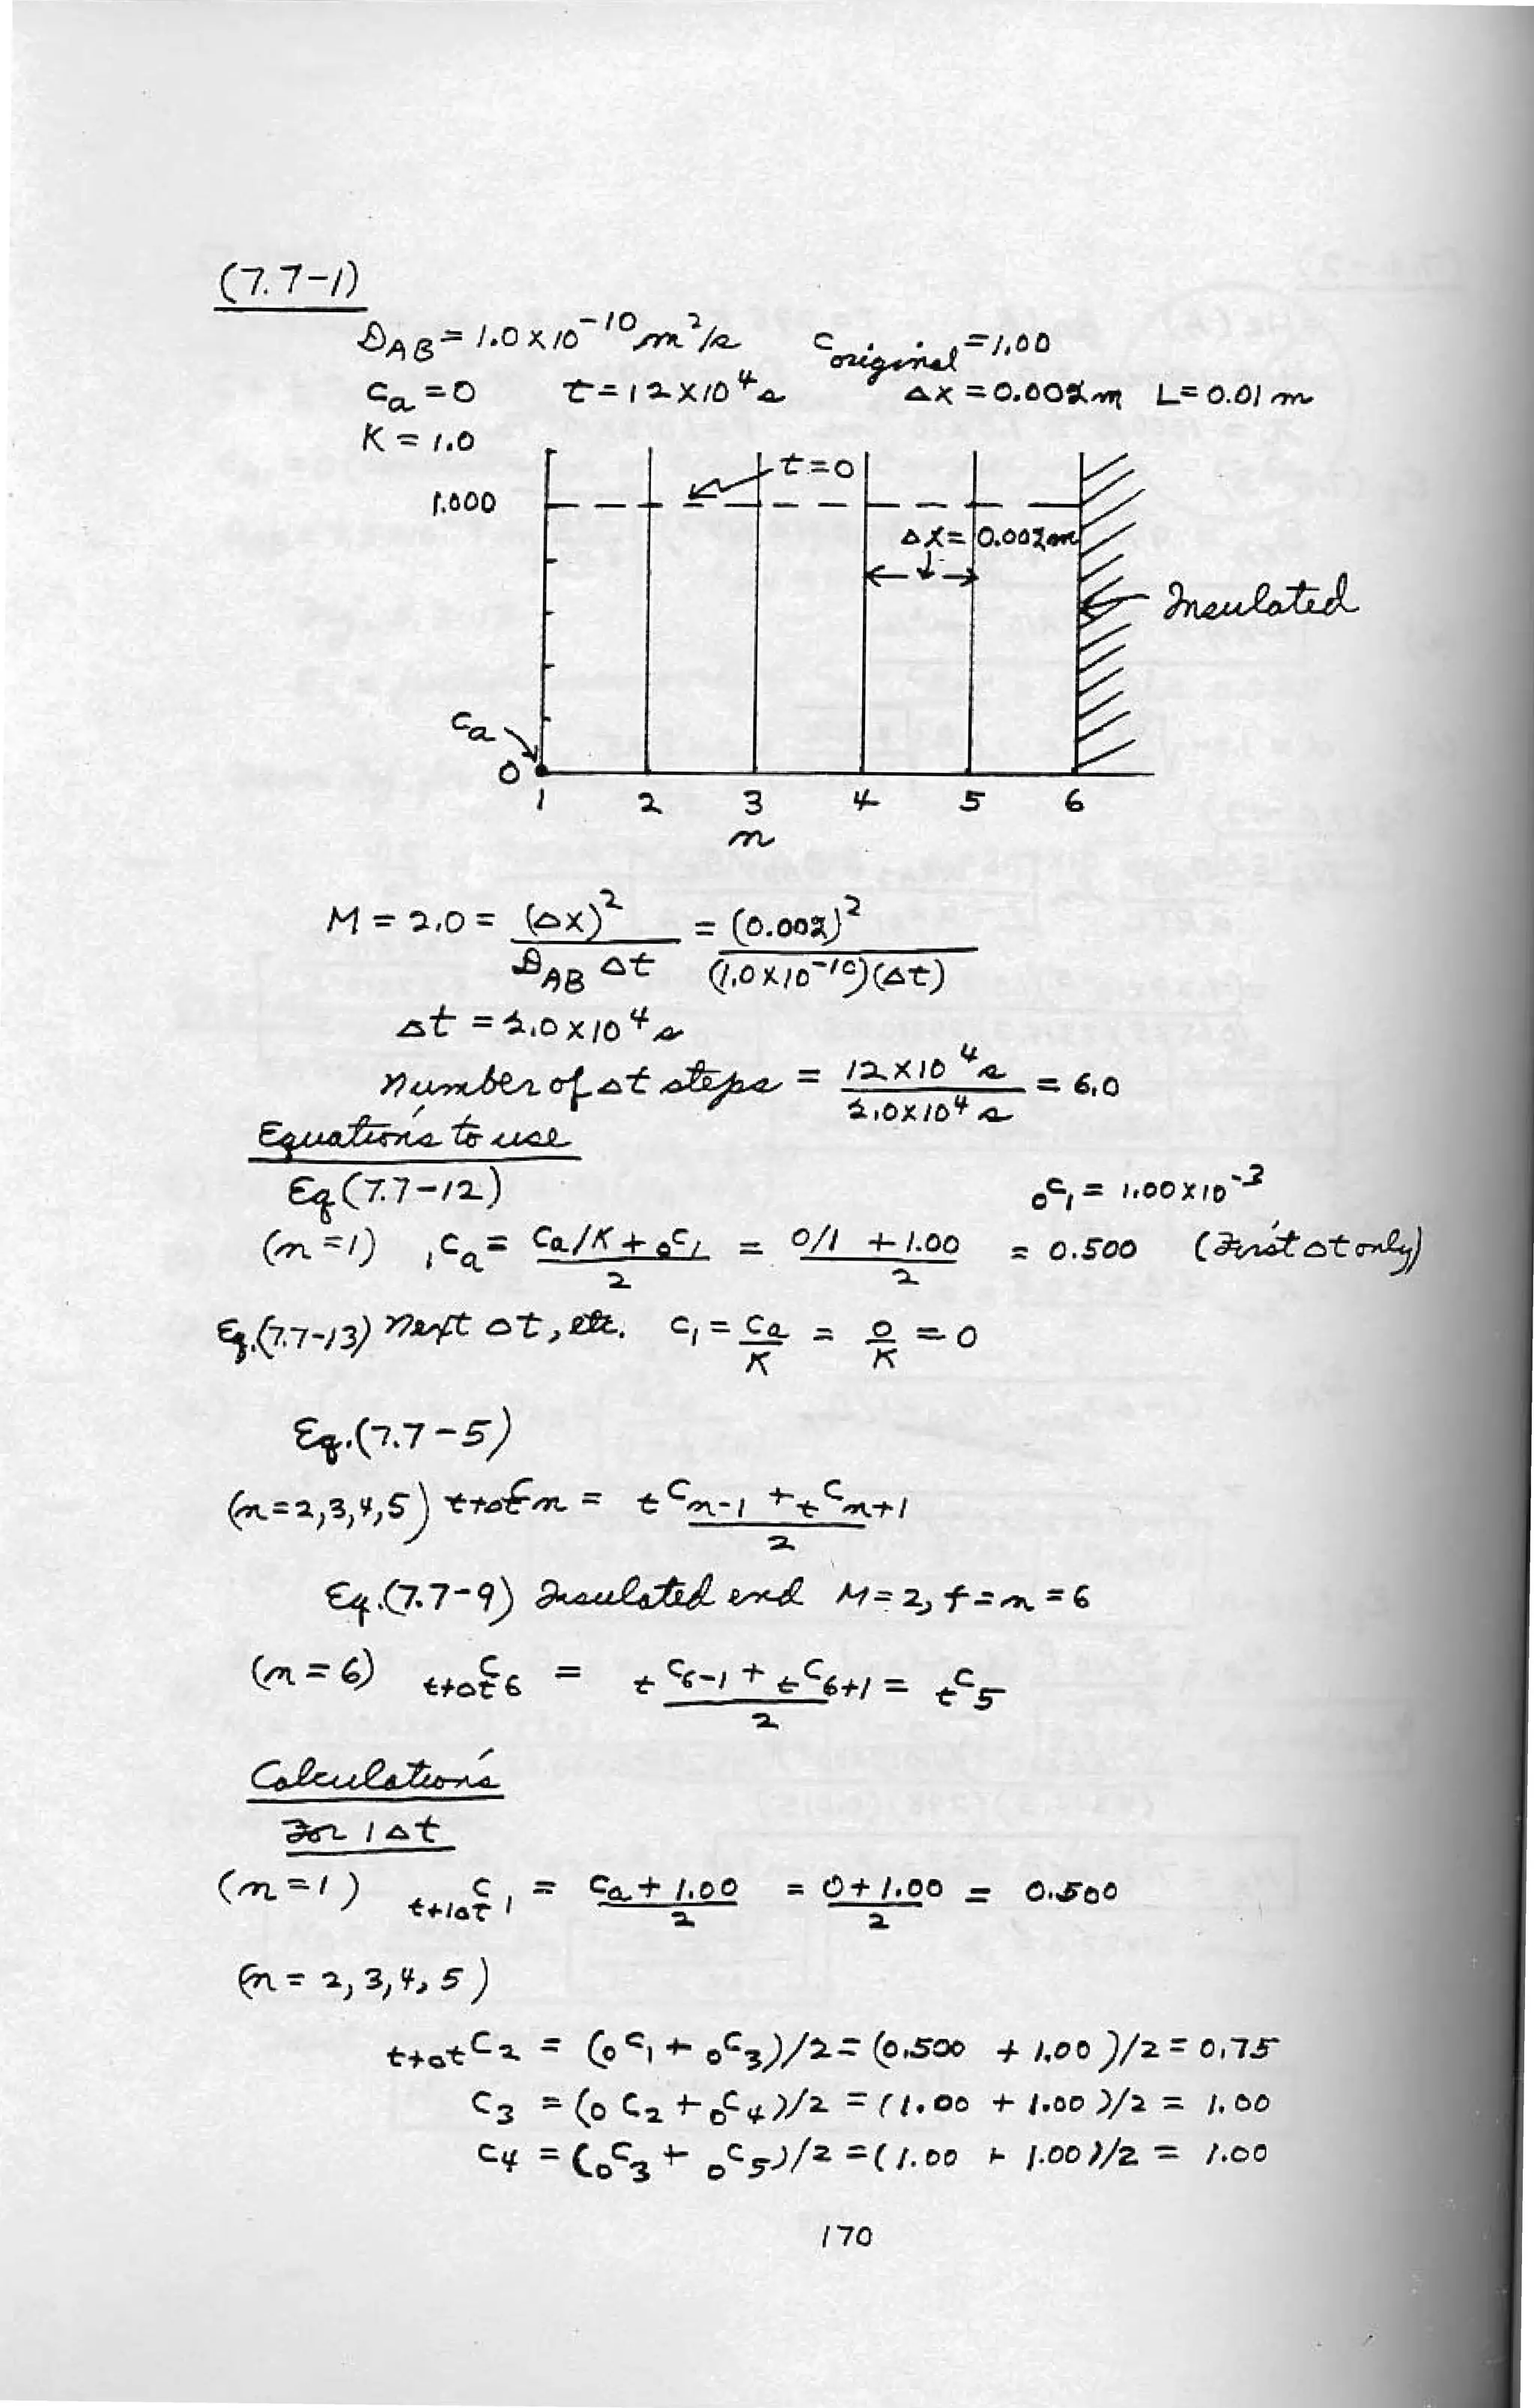 (7.7-1)
D_AB = 1.0 x 10^-10 m²/s   c_original = 1.00
c_a = 0   t = 12 x 10^4 s   Δx = 0.002 m   L = 0.01 m
K = 1.0
t = 0
1.000
Δx = 0.002 m
Insulated
c_a
0
1 2 3 4 5 6
n
M = 2.0 = (Δx)² / (D_AB Δt) = (0.002)² / ((1.0 x 10^-10)(Δt))
Δt = 2.0 x 10^4 s
Number of Δt steps = 12 x 10^4 s / 2.0 x 10^4 s = 6.0
Equations to use
Eq (7.7-12)   ₀c₁ = 1.00 x 10^-3
(n = 1)   ₁c_a = (c_a/K + ₀c₁)/2 = (0/1 + 1.00)/2 = 0.500   (First Δt only)
Eq. (7.7-13) Next Δt, etc.   c₁ = c_a/K = 0/K = 0
Eq. (7.7-5)
(n = 2, 3, 4, 5)   t+Δt c_n = (t c_n-1 + t c_n+1)/2
Eq. (7.7-9) Insulated end   M = 2, f = n = 6
(n = 6)   t+Δt c_6 = (t c_6-1 + t c_6+1)/2 = t c_5
Calculations
For 1 Δt
(n = 1)   t+1Δt c_1 = (c_a + 1.00)/2 = (0 + 1.00)/2 = 0.500
(n = 2, 3, 4, 5)
t+Δt c_2 = (₀c₁ + ₀c₃)/2 = (0.500 + 1.00)/2 = 0.75
c_3 = (₀c₂ + ₀c₄)/2 = (1.00 + 1.00)/2 = 1.00
c_4 = (₀c₃ + ₀c₅)/2 = (1.00 + 1.00)/2 = 1.00
170